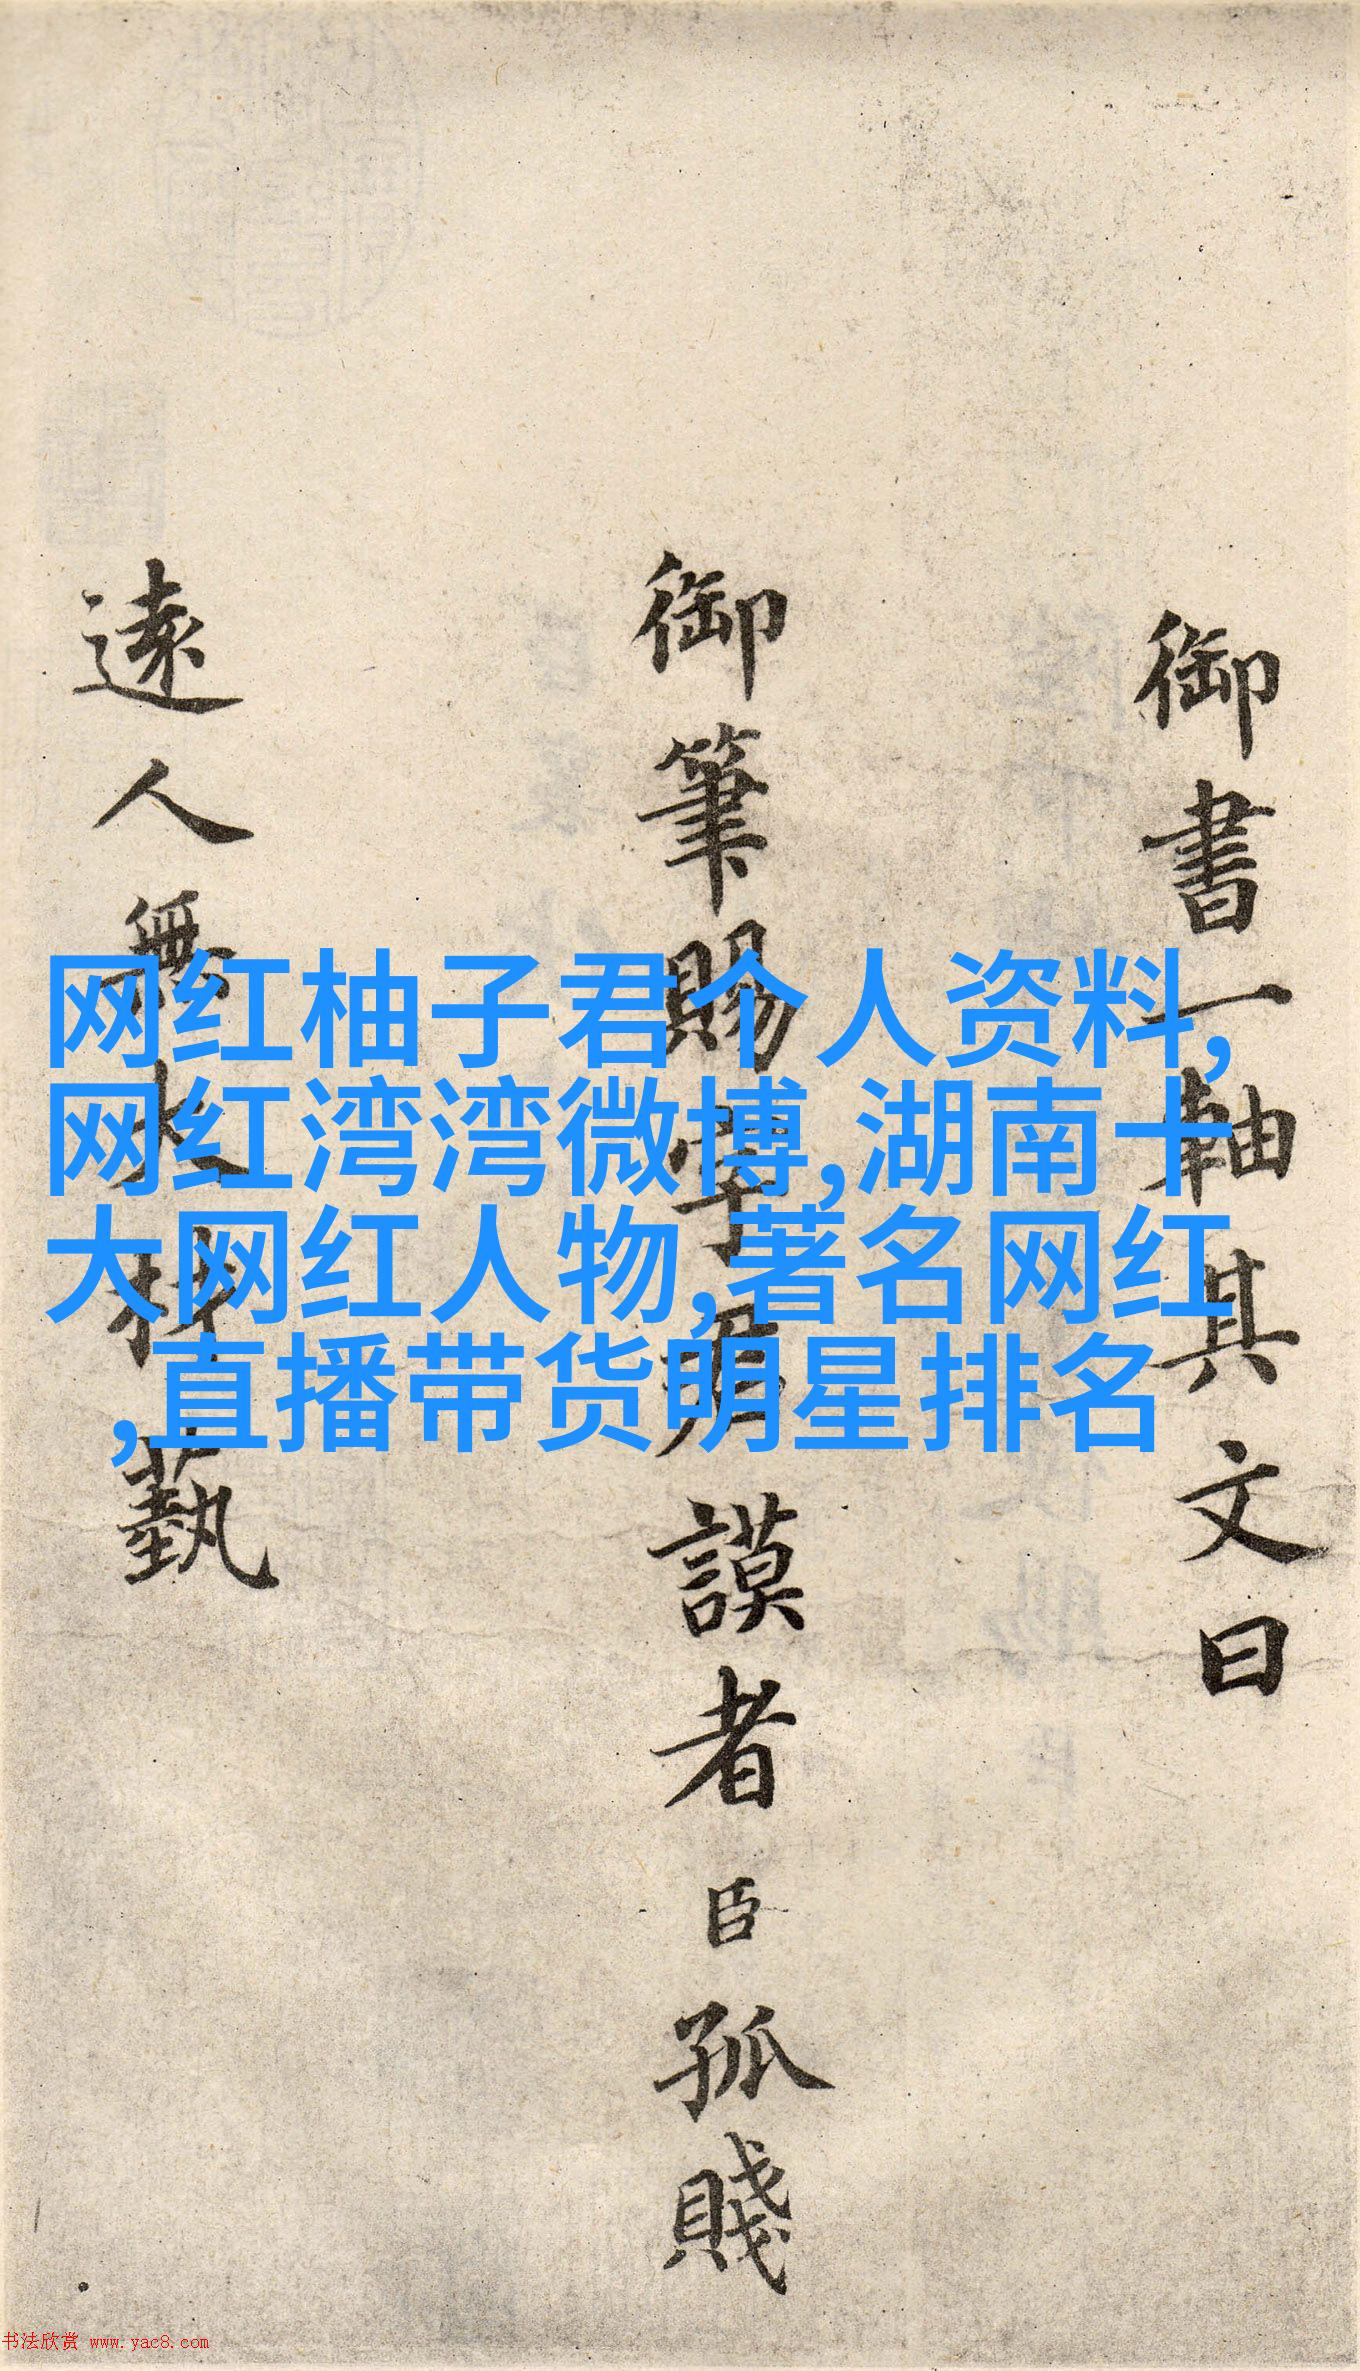 御書一軸其文曰
御筆賜字君謨者臣孤賤
遠人無大材藝
网红柚子君个人资料,
网红湾湾微博,湖南十
大网红人物,著名网红
,直播带货明星排名
书法欣赏 www.yac8.com